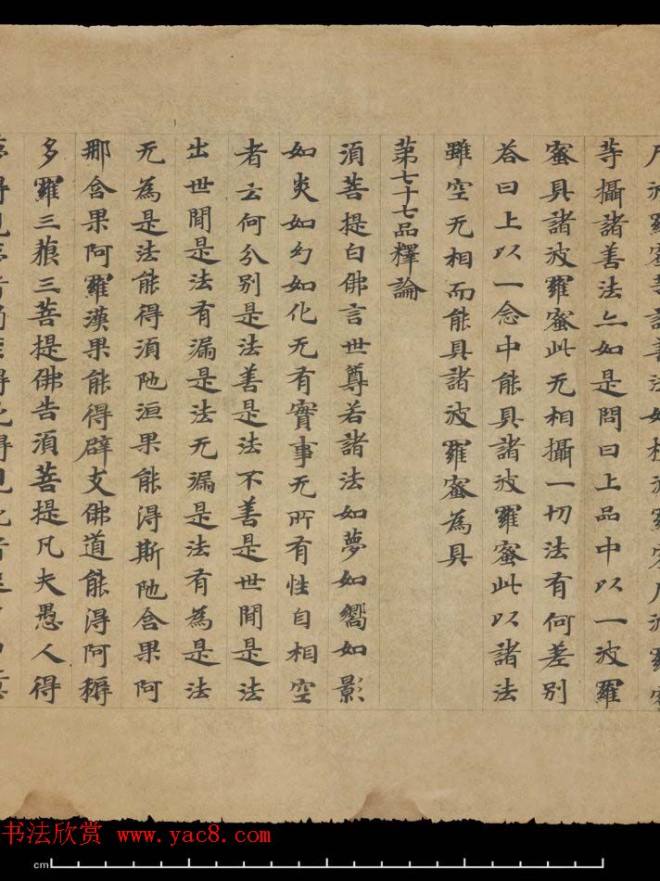 尸波羅蜜等諸善法如檀波羅蜜尸波羅蜜
等攝諸善法亦如是問曰上品中以一波羅
蜜具諸波羅蜜此无相攝一切法有何差別
答曰上以一念中能具諸波羅蜜此以諸法
雖空无相而能具諸波羅蜜為具
第七十七品釋論
須菩提白佛言世尊若諸法如夢如嚮如影
如炎如幻如化无有實事无所有性自相空
者云何分別是法善是法不善是世間是法
出世間是法有漏是法无漏是法有為是法
无為是法能得須陁洹果能得斯陁含果阿
那含果阿羅漢果能得辟支佛道能得阿耨
多羅三藐三菩提佛告須菩提凡夫愚人得
书法欣赏 www.yac8.com
cm